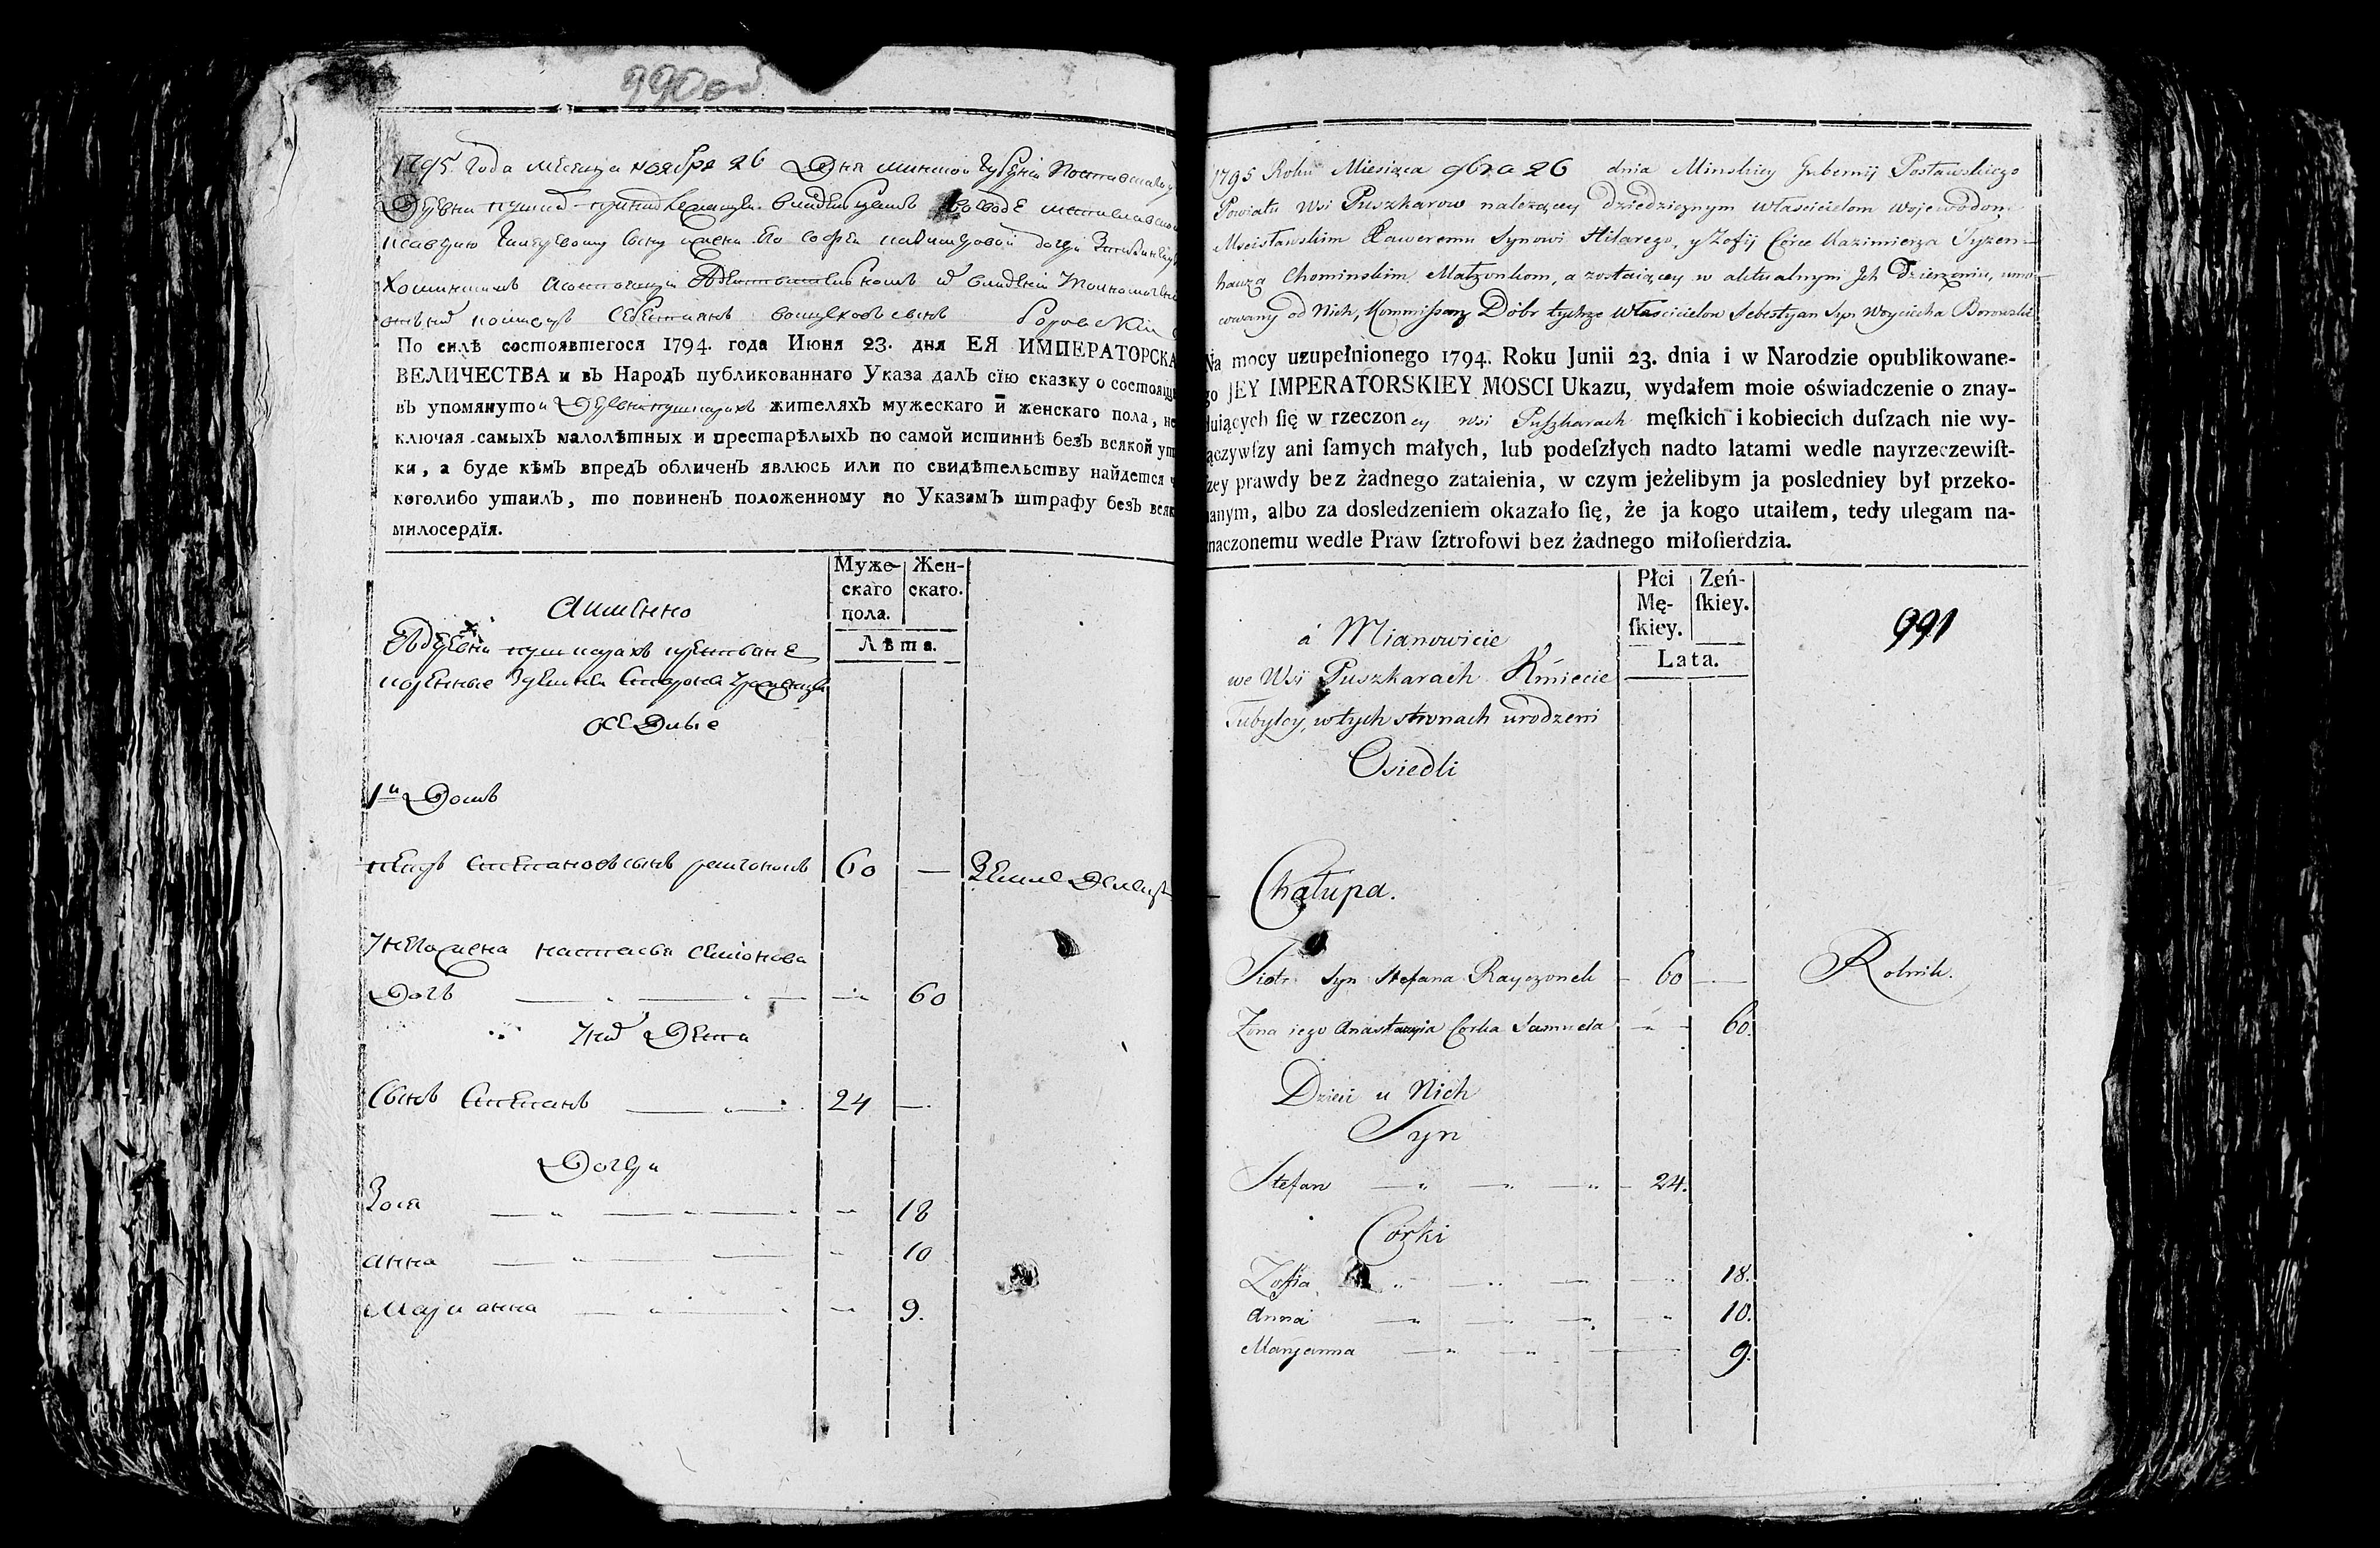 990об
1795 года месяца ноября 26 Дня минской губернїи Поставскаго
Деревни принадлежащей владельцамъ воеводе
сыну жены Его софїи казимеровой дочери
Хоминскимъ а состоящей владенїи
Себестїянъ войцеховъ сынъ Боровскїй
По силѣ состоявшегося 1794. года Июня 23. дня ЕЯ ИМПЕРАТОРСКА
ВЕЛИЧЕСТВА и въ НародЪ публикованнаго Указа далЪ сїю сказку о состоящи
вЪ упомянутой Деревни пушкарахъ жителяхЪ мужескаго и женскаго пола, не
ключая самыхЪ малолѣтныхЪ и престарѣлыхЪ по самой истиннѣ безЪ всякой ут
ки, а буде кѣмЪ впредЪ обличенЪ явлюсь или по свидѣтельству найдется ч
коголибо утаилЪ, то повиненЪ положенному по УказамЪ штрафу безЪ всяк
милосердїя.
Муже-скаго пола. Жен-скаго.
Лѣта.
Аименно
Вдеревни пушкарахъ крестьяне
коренные здешней стороны уроженцы
оседлые
1й Домъ
петръ степановъ сынъ рейчонокъ 60 — Земледелецъ
Унего жена настасья семїонова
Дочь — — — 60
Уних Дети
Сынъ степанъ — 24 —
Дочери
Зося — — — 18
анна — — — 10
Марианна — — — 9.
1795 Roku Miesiąca 9bra 26 dnia Minskiey Gubernij Postawskiego
Powiatu Wsi Puszkarow należącey Dziedzicznym właścicielom Wojewodom
Mscisławskim Xaweremu Synowi Hilarego, y Zofij Córce Kazimierza Tyzen-
hauza Chominskim Małzonkom, a zostaiącey w aktualnym Jch Dzierzeniu, umo-
cowany od Nich, Kommissarz Dobr tychże Właścicielow Sebestyan Syn Woyciecha Borowski
Na mocy uzupełnionego 1794. Roku Junii 23. dnia i w Narodzie opublikowane-
go JEY IMPERATORSKIEY MOSCI Ukazu, wydałem moie oświadczenie o znay-
duiących ſię w rzeczoney wsi Puszkarach męſkich i kobiecich duſzach nie wy-
łączywſzy ani ſamych małych, lub podeſzłych nadto latami wedle nayrzeczewiſt-
zey prawdy bez żadnego zataienia, w czym jeżelibym ja posledniey był przeko-
nanym, albo za dosledzeniem okazało ſię, że ja kogo utaiłem, tedy ulegam na-
znaczonemu wedle Praw ſztrofowi bez żadnego miłoſierdzia.
Płci Mę-ſkiey. Zeń-ſkiey.
Lata.
991
á Mianowicie
we Wsi Puszkarach Kmiecie
Tubylcy, w tych stronach urodzeni
Osiedli
Chałupa.
Piotr Syn Stefana Rayczonek — 60 — Rolnik.
Zona iego Anastazyia Corka Samuela — 60.
Dzieci u Nich
Syn
Stefan — — — 24.
Corki
Zofia — — — 18.
Anna — — — 10.
Maryanna — — — 9.